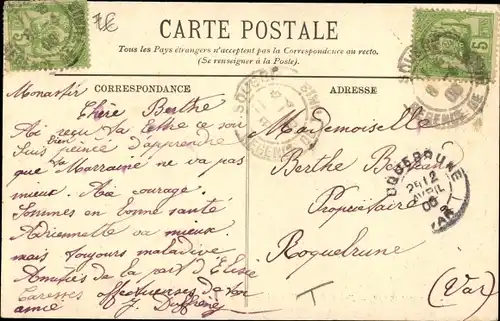 CARTE POSTALE
Tous les Pays étrangers n'acceptent pas la Correspondance au recto.
(Se renseigner à la Poste).
CORRESPONDANCE
Monastir
Chère Berthe
Ai reçu ta lettre ce soir
Suis bien peinée d'apprendre
que ta Marraine ne va pas
mieux. Aie courage.
Sommes en bonne santé
Adrienne va mieux
mais toujours maladive
Amitiés de la part d'Elise
Caresses affectueuses de ton
amie J.
ADRESSE
Mademoiselle
Berthe
Propriétaire
Roquebrune
(Var)
T
5
5
SOUSSE
ROQUEBRUNE
25 12
AVRIL
06
VAR